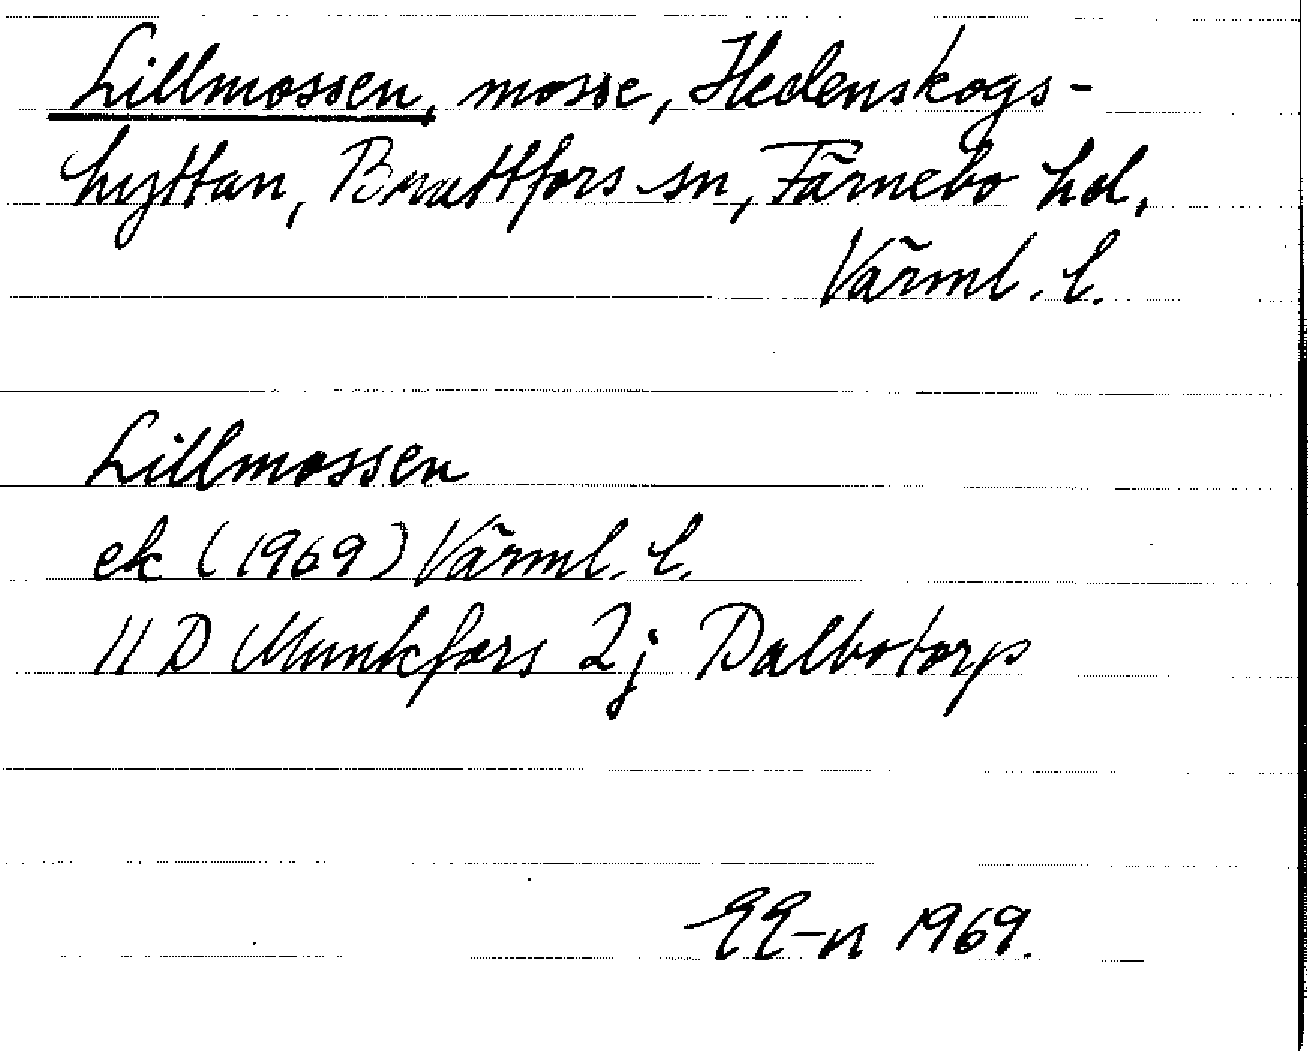 Lillmossen, mosse, Hedenskogs-
hyttan, Brattfors sn, Färnebo hd,
Värml. l.
Lillmossen
ek (1969) Värml. l.
11 D Munkfors 2j Dalbotorp
EE-n 1969.